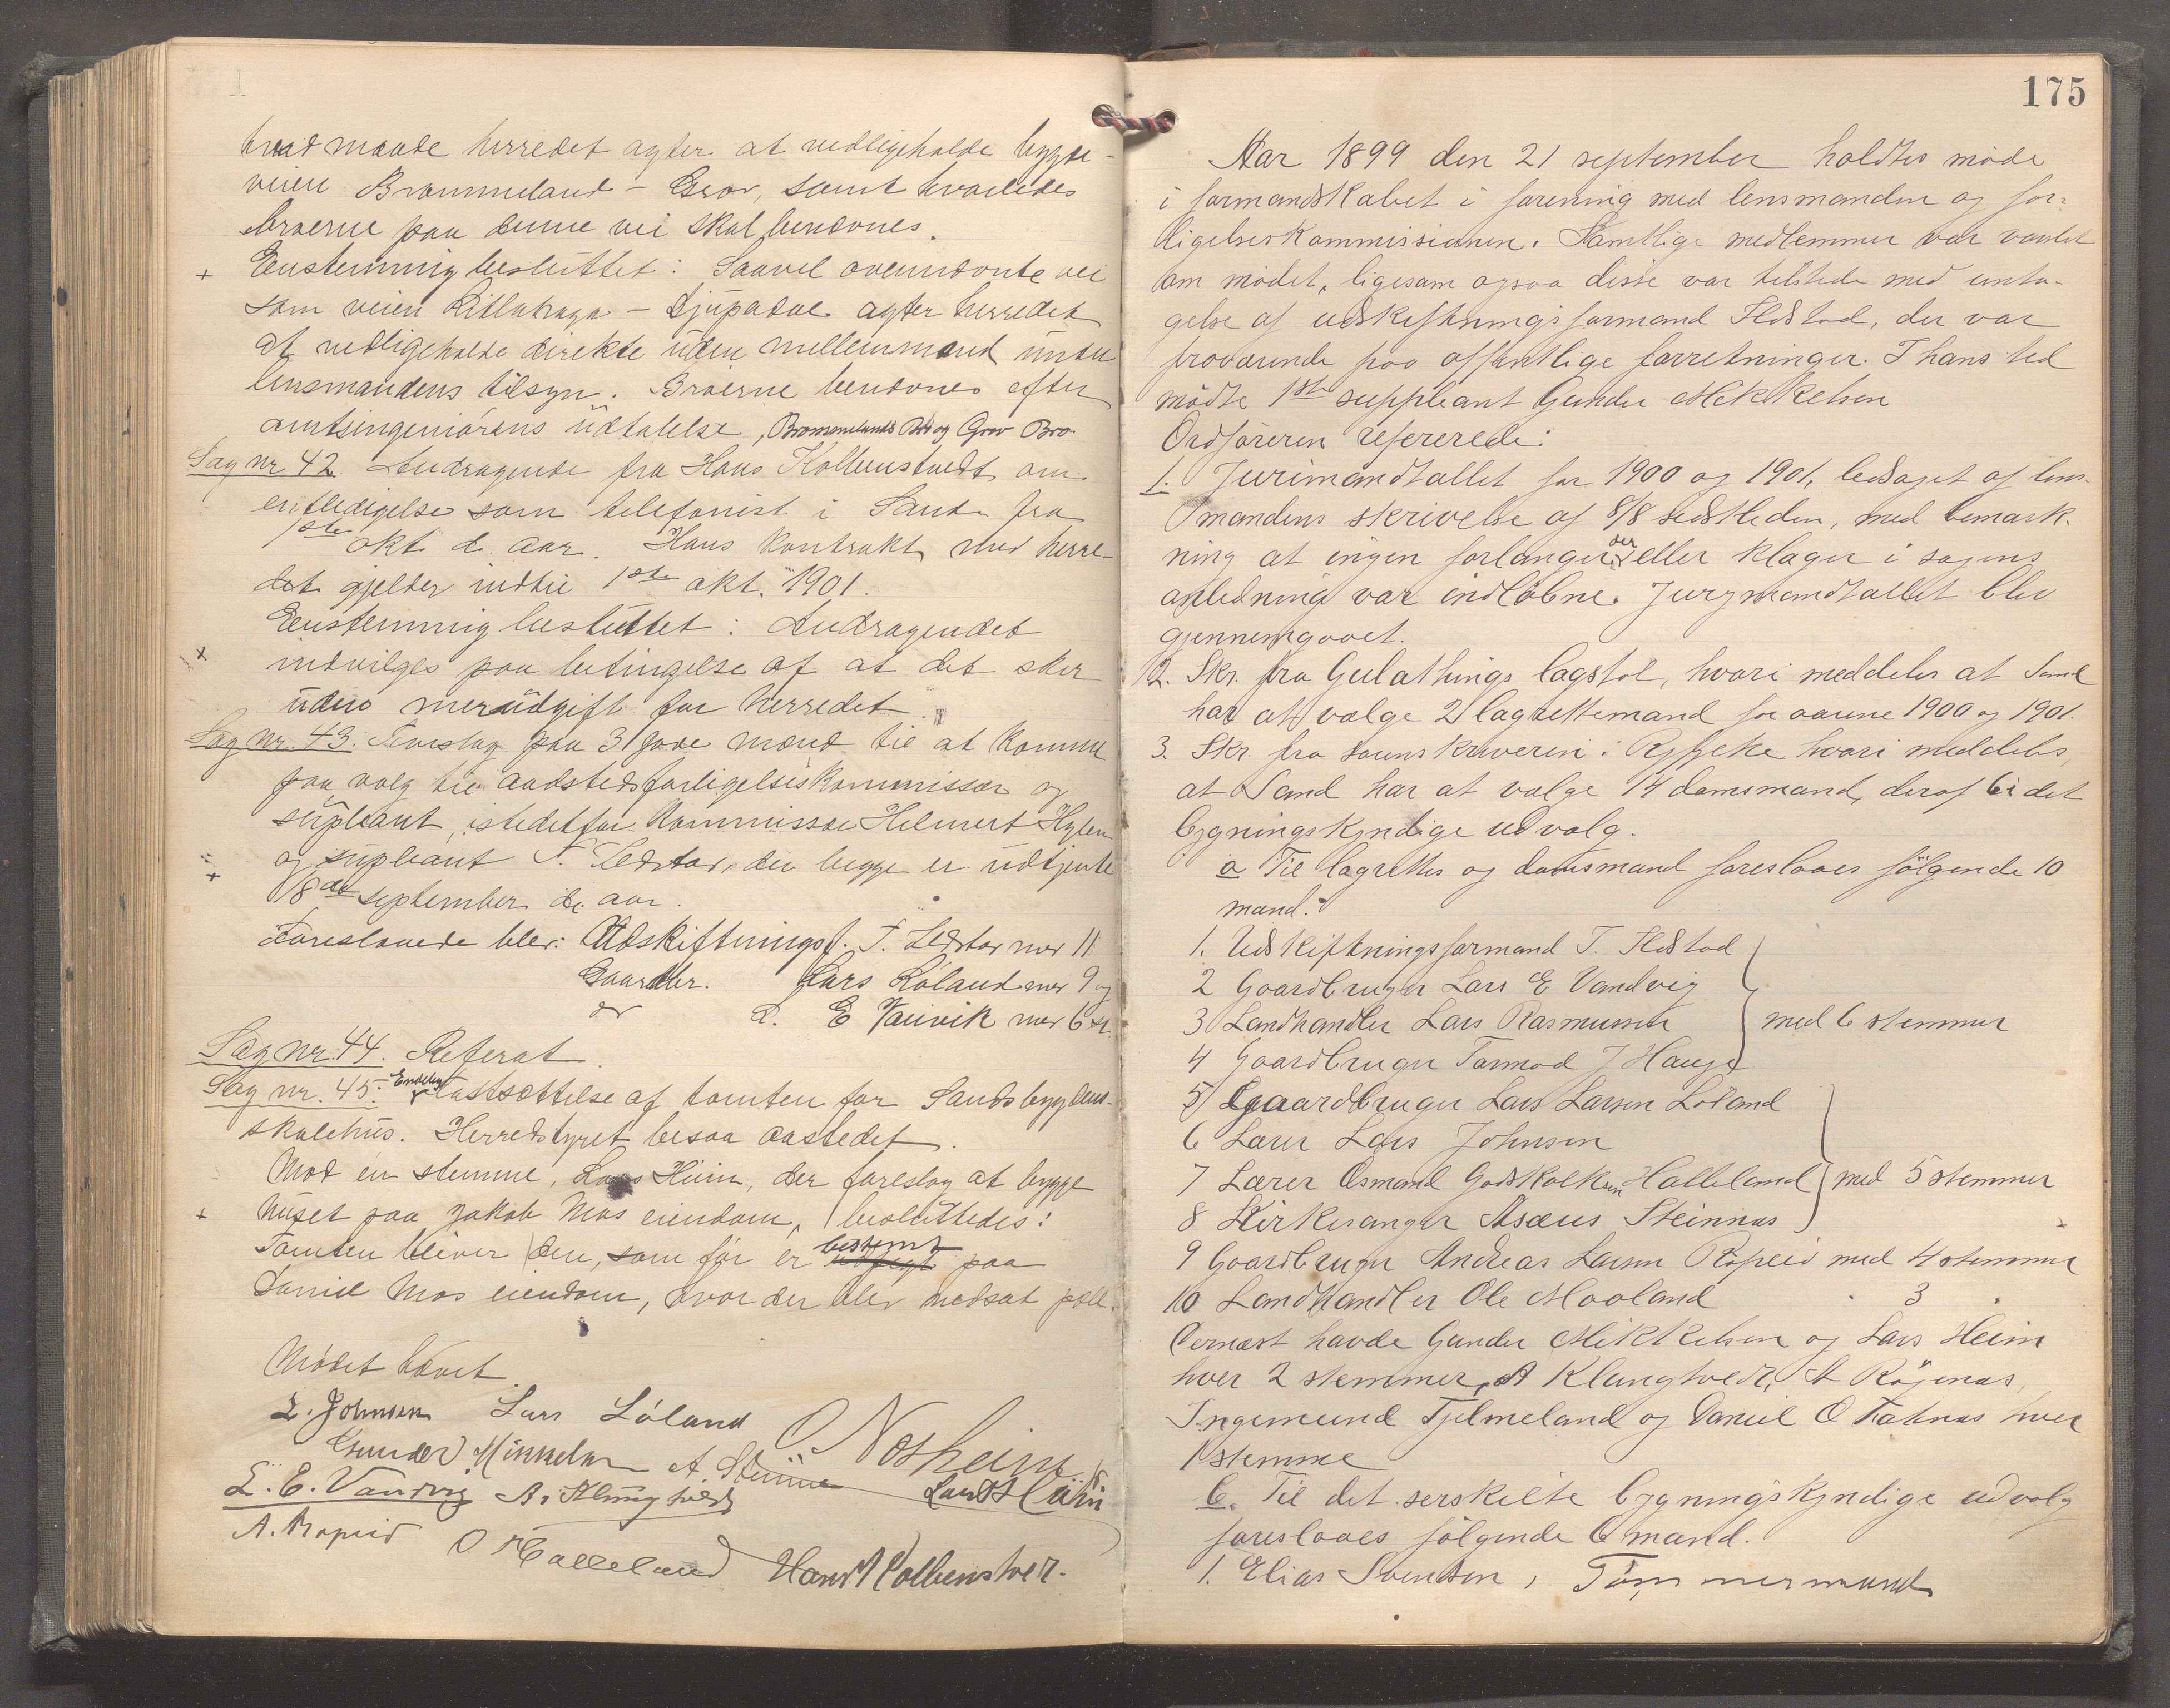 hvad maade herredet agter at vedligeholde bygde-
veien Brommeland - Grov, samt hvorledes
broerne paa denne vei skal benævnes.
+ Eenstemmig besluttet: Saavel ovennævnte vei
som veien Litlehaga - Djupadal agter herredet
at vedligeholde direkte uden mellemmænd under
lensmandens tilsyn. Broerne benævnes efter
amtsingeniørens udtalelse, Brommelands Bro og Grov Bro
Sag nr 42. Andragende fra Hans Kolbenstvedt om
entledigelse som telefonist i Sand fra
1ste okt. d. aar. Hans kontrakt med herre-
det gjelder indtil 1ste okt. 1901.
Eenstemmig besluttet: Andragendet
+ indvilges paa betingelse af at det sker
uden merudgift for herredet.
Sag nr. 43. Forslag paa 3 gode mænd til at komme
paa valg til aadstedsforligelseskommissær og
supleant, istedetfor kommissær Helmert Hylen
+ og supleant T. Ildstad, der begge er udtjente
18de september d. aar.
Foreslaaede blev: Udskiftningsf. T. Ildstad med 11
Gaardbr. Lars Løland med 9 og
do L. E Vanvik med 6 st.
Sag nr. 44. Referat.
Sag nr. 45. Endelig fastsættelse af tomten for Sandsbygdens
skolehus. Herredstyret besaa aastedet.
Mod en stemme, Lars Heim, der foreslog at bygge
+ huset paa Jakob Mos eiendom, besluttedes:
Tomten bliver den, som før er bestemt paa
Daniel Mos eiendom, hvor der blev nedsat pæl.
Mødet hævet.
L. Johnsen Lars Løland O Nosheim
Gunder Mikkelsen A. Steinnes Lars Heim
L. E. Vandvig A. Klungtvedt
A. Ropeid O Halleland Hans Kolbenstvedt.
175
Aar 1899 den 21 september holdtes møde
i formandskabet i forening med lensmanden og for-
ligelseskommissionen. Samtlige medlemmer var varslet
om mødet, ligesom ogsaa disse var tilstede med unta-
gelse af udskiftningsformand Ildstad, der var
fraværende paa offentlige forretninger. I hans sted
mødte 1ste suppleant Gunder Mikkelsen
Ordføreren refererede:
1. Jurimandtallet for 1900 og 1901, ledsaget af lens-
mandens skrivelse af 8/8 sidstleden, med bemærk-
ning at ingen forlangender eller klager i sagens
anledning var indløbne. Jurymandtallet blev
gjennemgaaet.
2. Skr. fra Gulathings lagstol, hvori meddeles at Sand
har at vælge 2 lagrettemænd for aarene 1900 og 1901.
3. Skr. fra sorenskriveren i Ryfylke hvori meddeles,
at Sand har at vælge 14 domsmænd, deraf 6 i det
bygningskyndige udvalg.
a Til lagrettes og domsmænd foreslaaes følgende 10
mænd:
1. Udskiftningsformand T. Ildstad
2 Gaardbruger Lars E Vandvig
3 Landhandler Lars Rasmussen med 6 stemmer
4 Gaardbruger Tormod J Hauge
5 Gaardbruger Lars Larsen Løland
6 Lærer Lars Johnsen
7 Lærer Osmund Godskalksen Halleland med 5 stemmer
8 Kirkesanger Asæus Steinnes
9 Gaardbruger Andreas Larsen Ropeid med 4 stemmer
10 Landhandler Ole Maaland " 3 "
Dernæst havde Gunder Mikkelsen og Lars Heim
hver 2 stemmer, A Klungtvedt, A Røgenæs,
Ingemund Tjelmeland og Daniel O hver
1 stemme
b. Til det serskilte bygningskyndige udvalg
foreslaaes følgende 6 mænd.
1. Elias Svendsen, Tømmermand